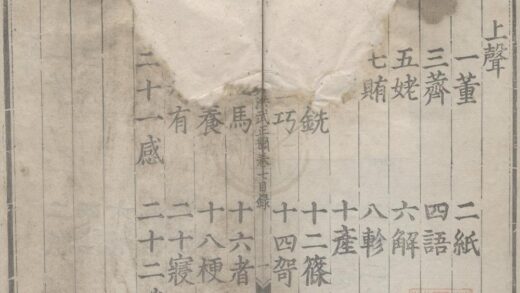 上聲
一董 二紙
三薺 四語
五姥 六解
七賄 八軫
十產
銑 十二篠
巧 十四哿
武正韻卷七目錄 一
馬 十六者
養 十八梗
有 二十寢
二十一感 二十二